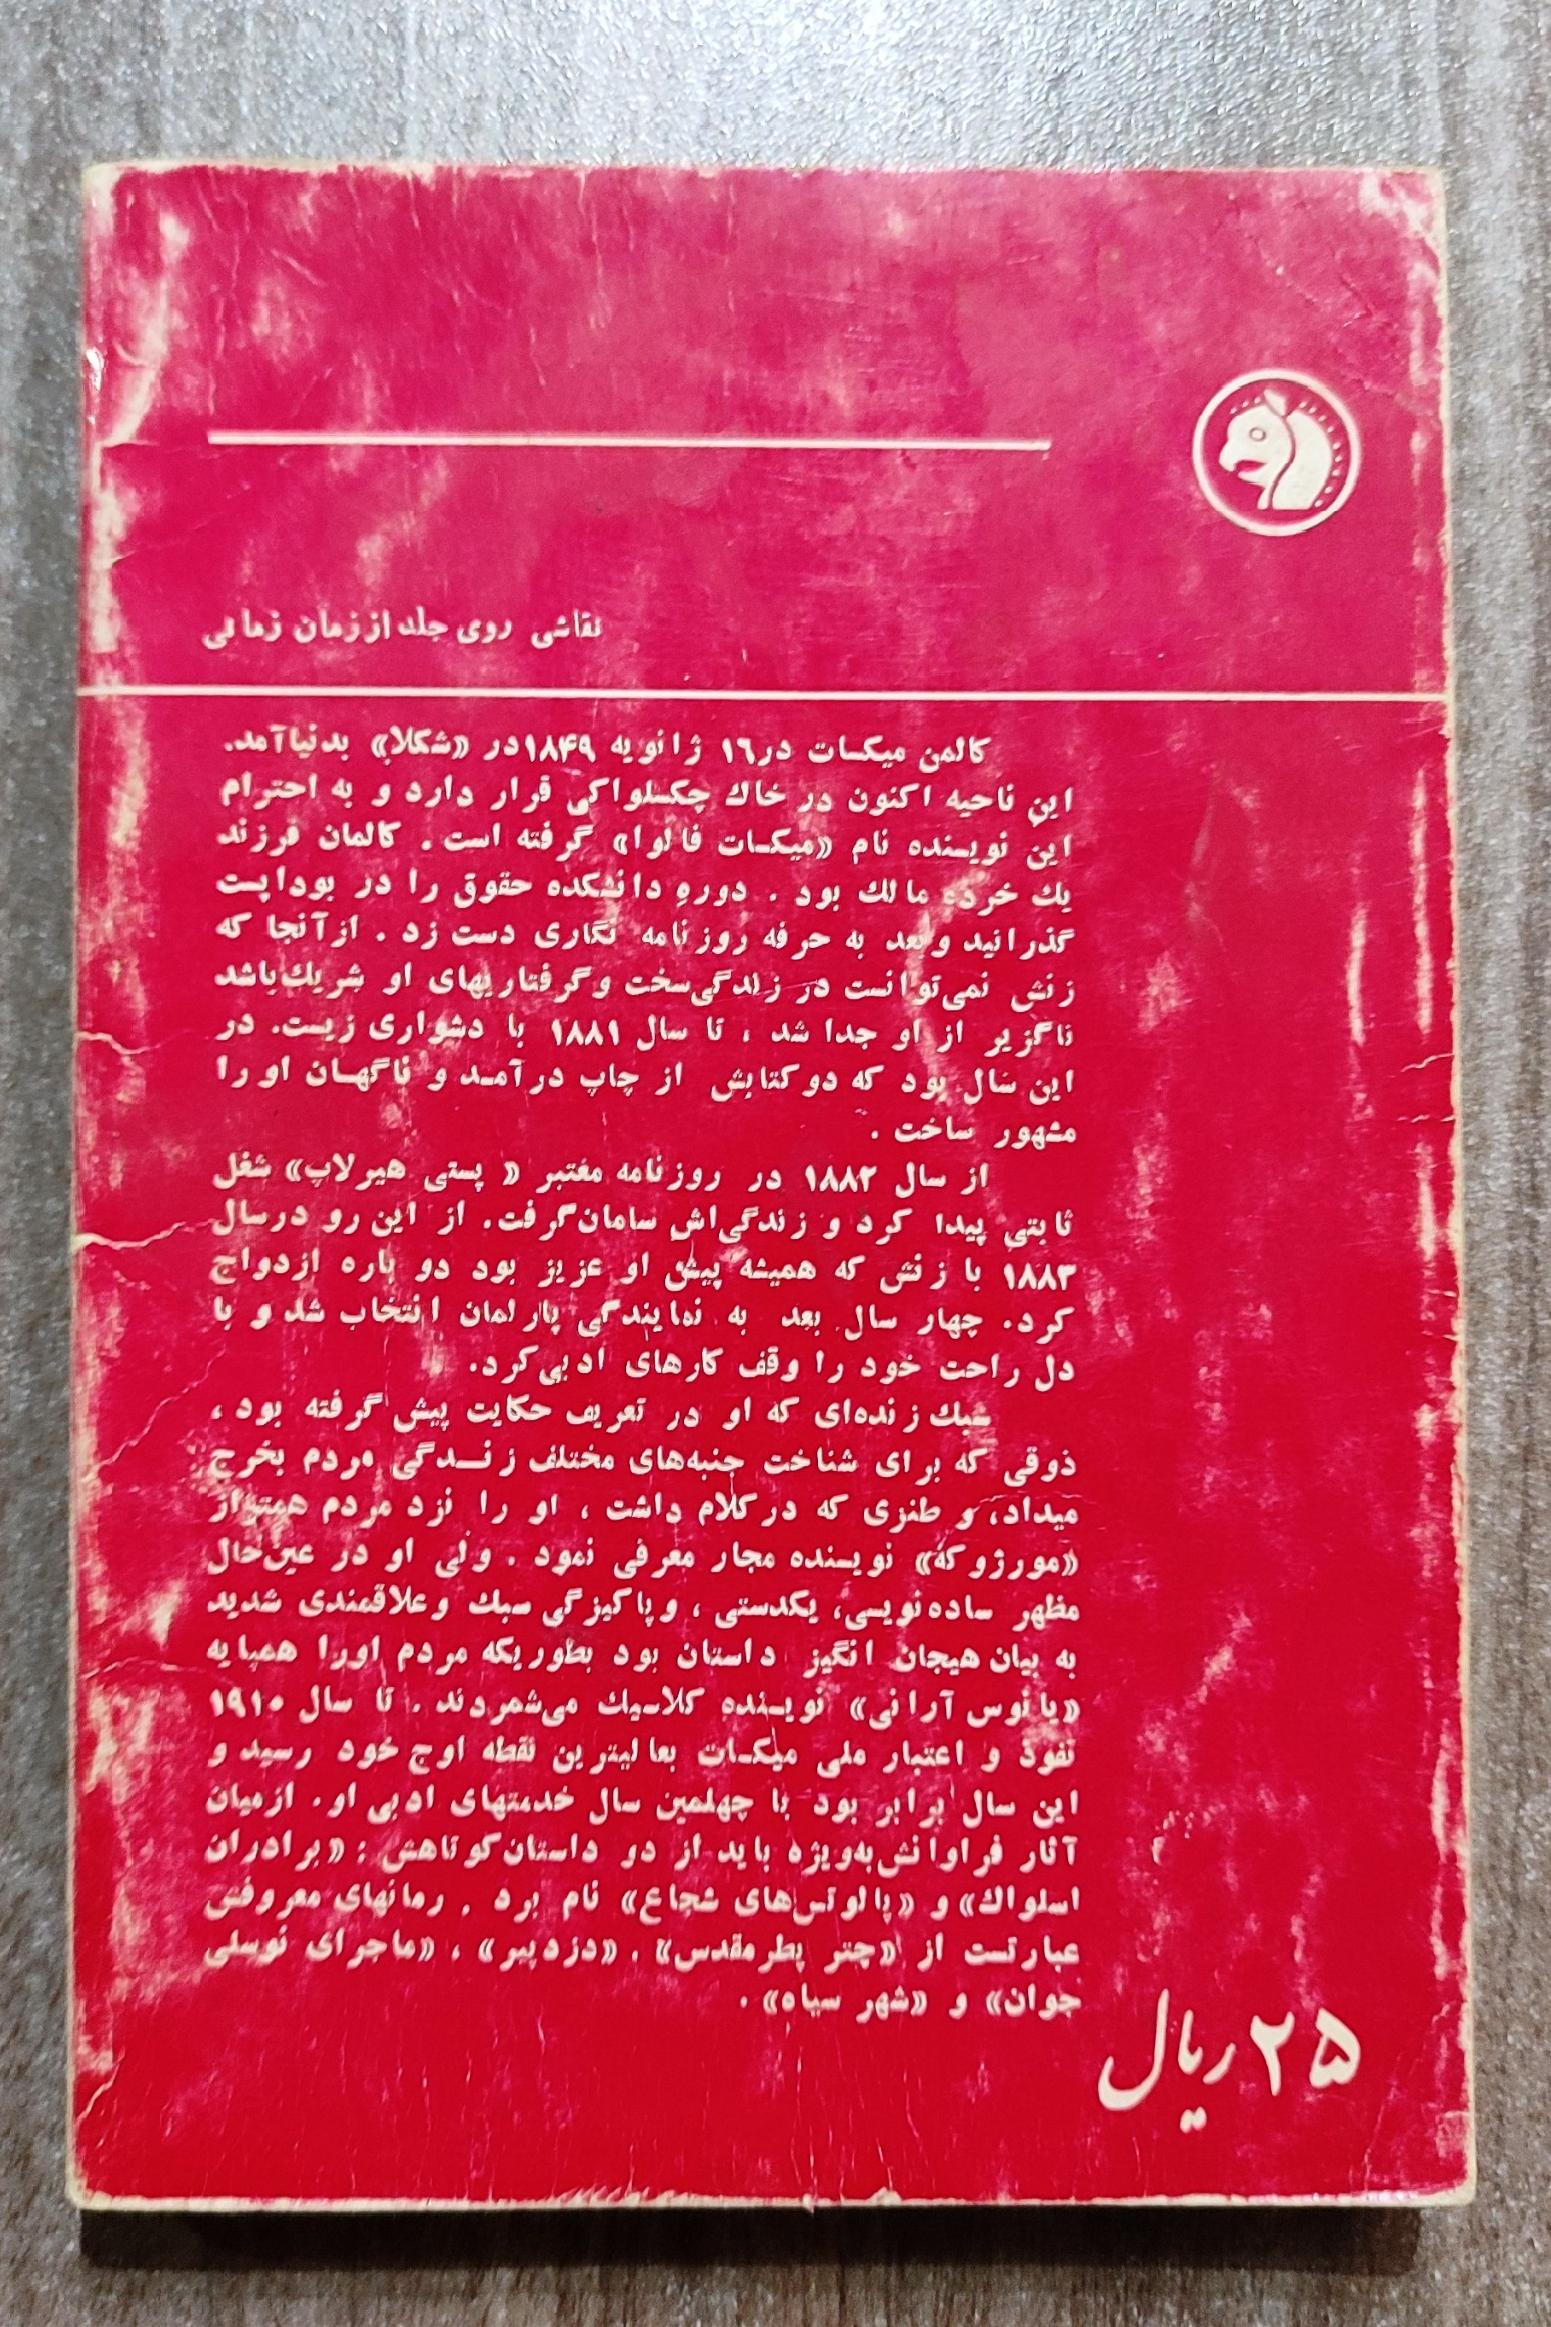 نقاشی روی جلد از زمان زمانی
کالمن میکسات در ۱۶ ژانویه ۱۸۴۹ در «شکلا» بدنیا آمد.
این ناحیه اکنون در خاك چکسلواکی قرار دارد و به احترام
این نویسنده نام «میکسات فالوا» گرفته است. کالمان فرزند
یك خرده مالك بود. دوره دانشکده حقوق را در بوداپست
گذرانید و بعد به حرفه روزنامه نگاری دست زد. از آنجا که
زنش نمی‌توانست در زندگی سخت و گرفتاریهای او شریك باشد
ناگزیر از او جدا شد، تا سال ۱۸۸۱ با دشواری زیست. در
این سال بود که دو کتابش از چاپ درآمد و ناگهان او را
مشهور ساخت.
از سال ۱۸۸۲ در روزنامه معتبر «پستی هیرلاپ» شغل
ثابتی پیدا کرد و زندگی‌اش سامان گرفت. از این رو در سال
۱۸۸۳ با زنش که همیشه پیش او عزیز بود دو باره ازدواج
کرد. چهار سال بعد به نمایندگی پارلمان انتخاب شد و با
دل راحت خود را وقف کارهای ادبی کرد.
سبك زنده‌ای که او در تعریف حکایت پیش گرفته بود،
ذوقی که برای شناخت جنبه‌های مختلف زندگی مردم بخرج
میداد، و طنزی که در کلام داشت، او را نزد مردم همتراز
«مورژوکه» نویسنده مجار معرفی نمود. ولی او در عین‌حال
مظهر ساده‌نویسی، یکدستی، و پاکیزگی سبك و علاقمندی شدید
به بیان هیجان انگیز داستان بود بطوریکه مردم او را همپایه
«یانوس آرانی» نویسنده کلاسیك می‌شمردند. تا سال ۱۹۱۰
نفوذ و اعتبار ملی میکسات بعالیترین نقطه اوج خود رسید و
این سال برابر بود با چهلمین سال خدمتهای ادبی او. از میان
آثار فراوانش به‌ویژه باید از دو داستان کوتاهش: «برادران
اسلواك» و «پالوتس‌های شجاع» نام برد. رمانهای معروفش
عبارتست از «چتر پطر مقدس». «دزد پیر»، «ماجرای نوسلی
جوان» و «شهر سیاه».
۲۵ ریال